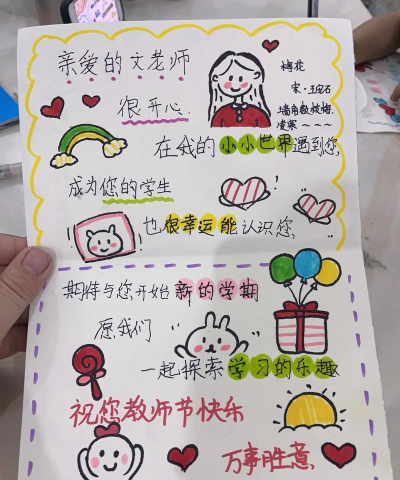 亲爱的文老师
梅花
宋·王安石
墙角数枝梅,
凌寒~~~
很开心
在我的小小世界遇到您,
成为您的学生
也很幸运能认识您,
期待与您开始新的学期
愿我们
一起探索学习的乐趣
祝您教师节快乐
万事胜意,